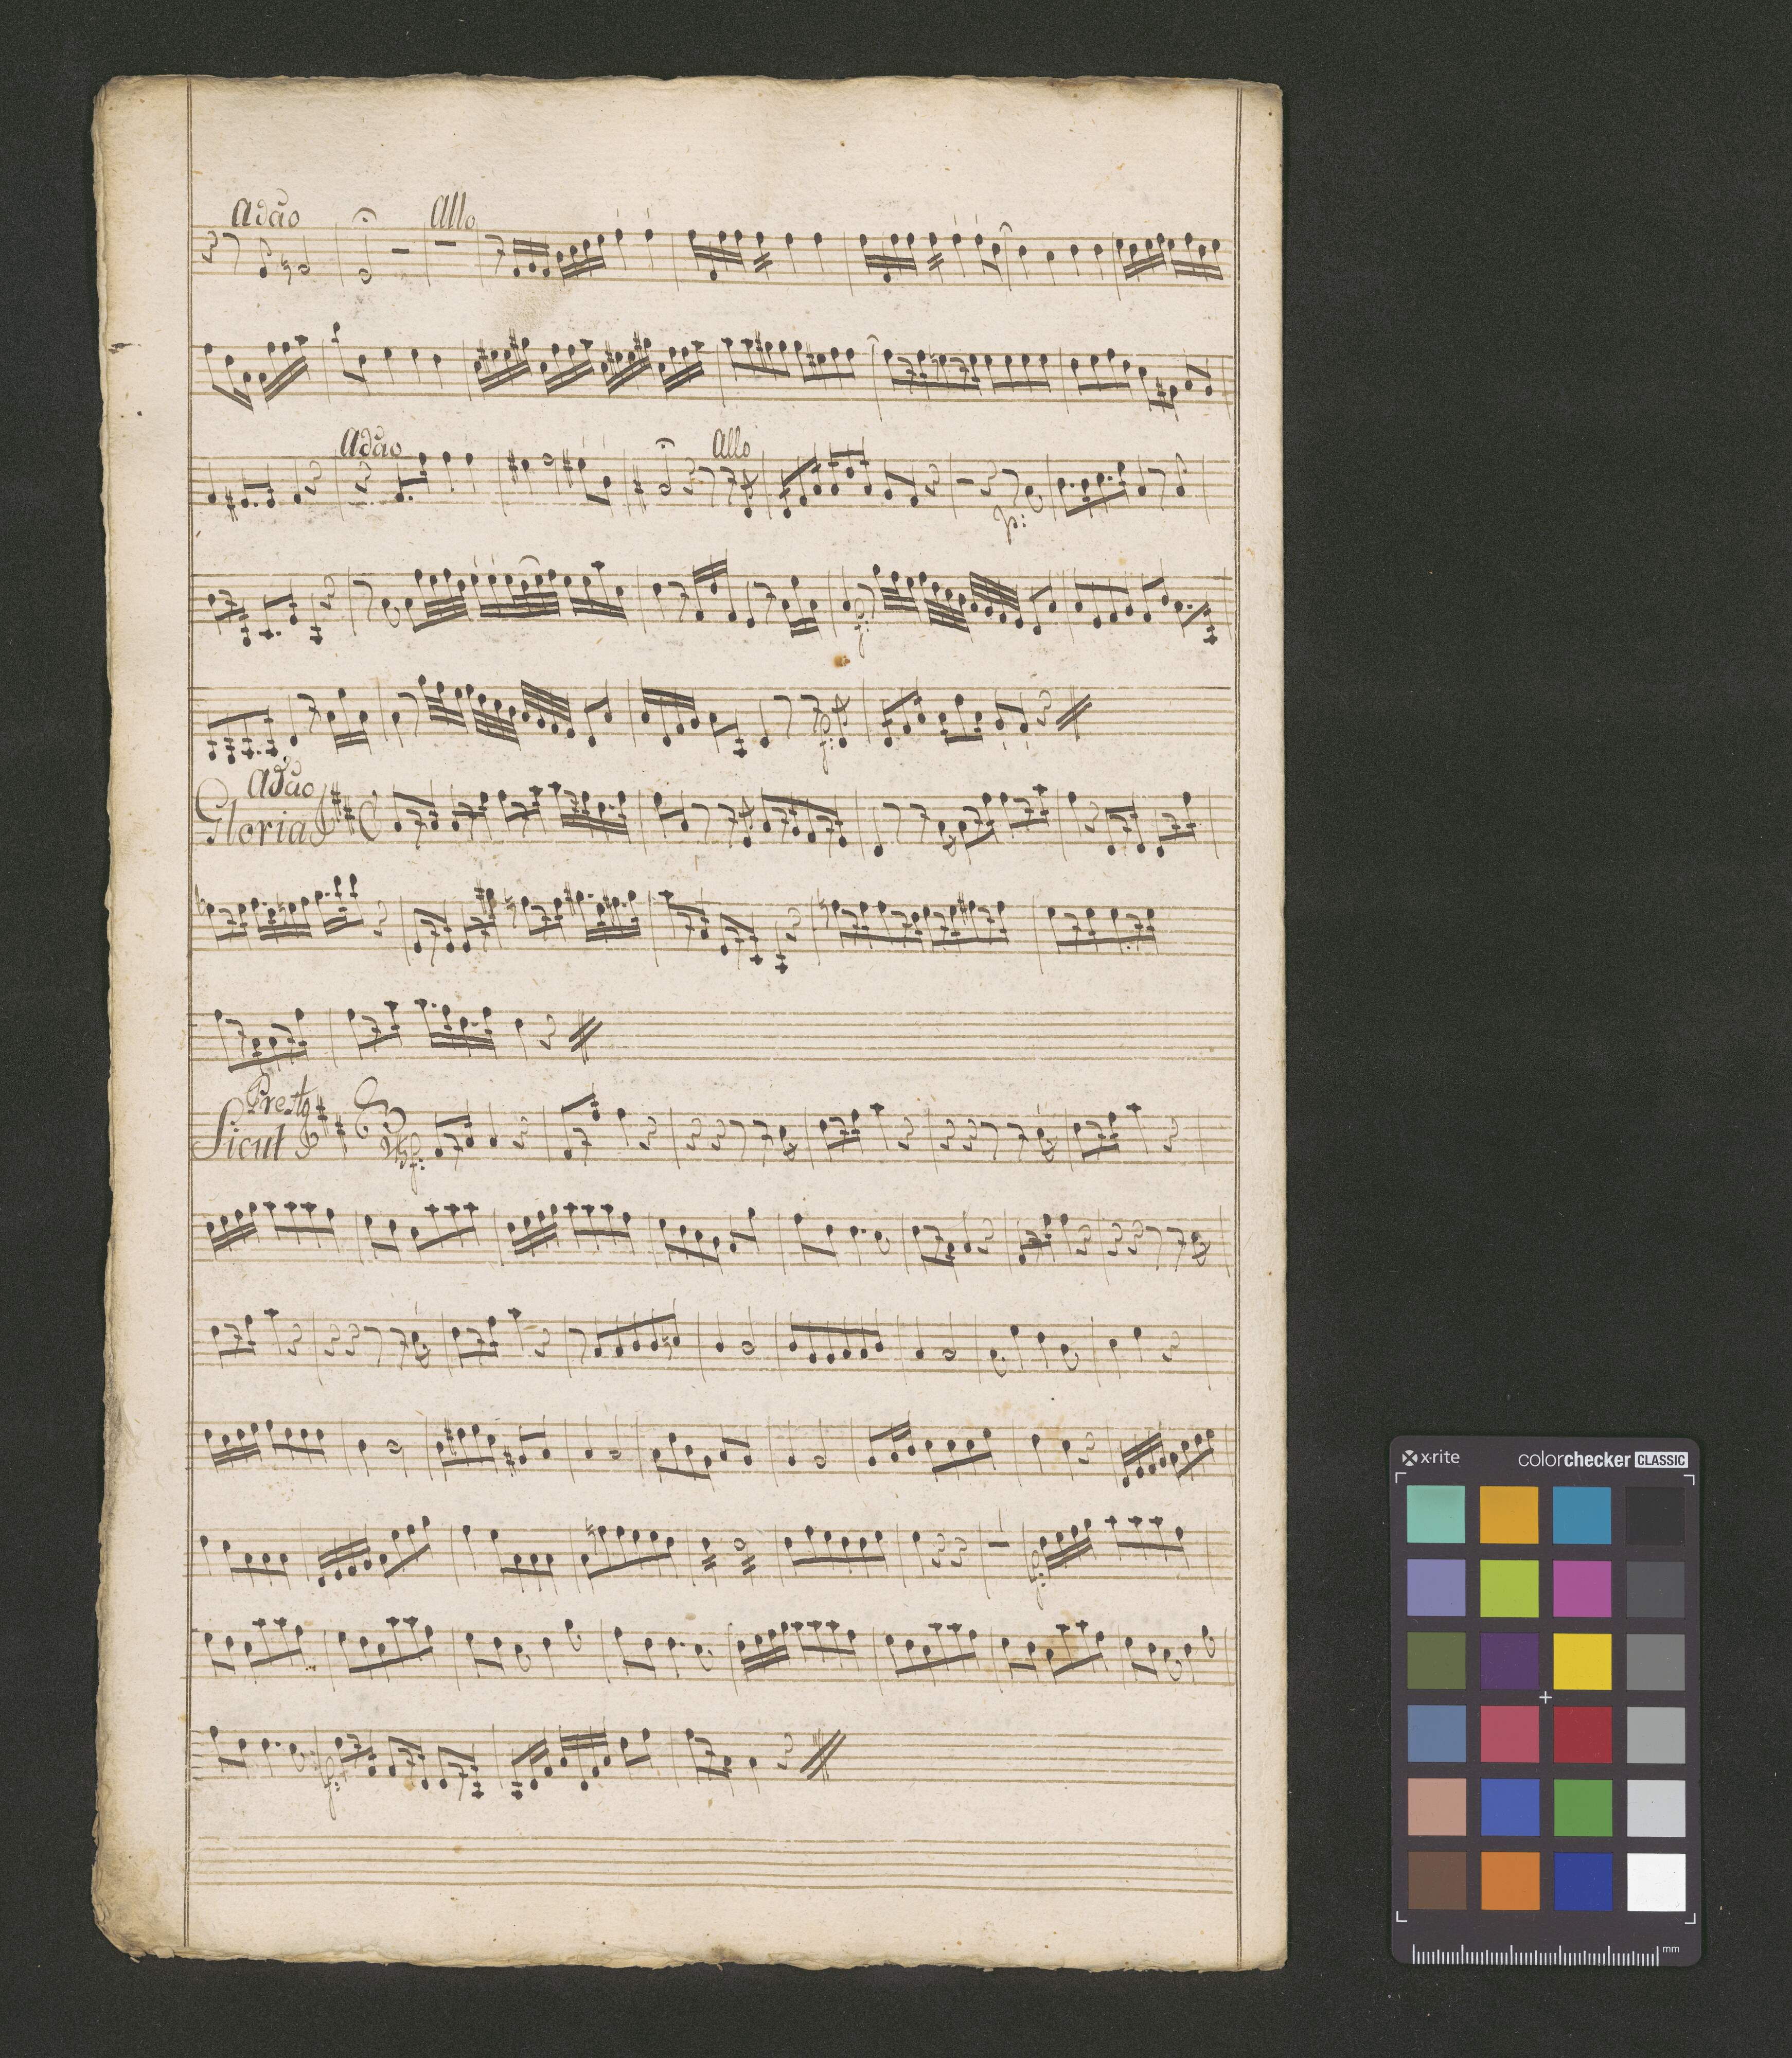 Adão Allo
Adão Allo
p:
f:
f:
Adão
Gloria
Presto
Sicut f:
f:
f:
x-rite colorchecker CLASSIC
mm